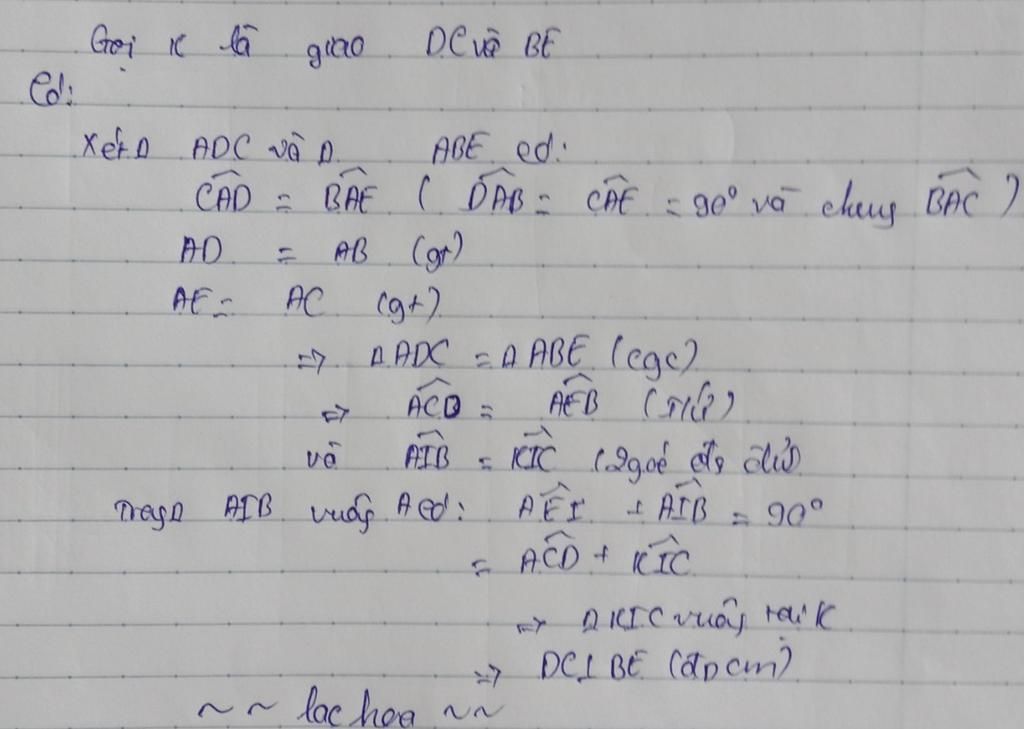 Gọi K là giao DC và BE
Có:
Xét Δ ADC và Δ ABE có:
\widehat{CAD} = \widehat{BAE} ( \widehat{DAB} = \widehat{CAE} = 90° và chung \widehat{BAC} )
AD = AB (gt)
AE = AC (gt)
=> Δ ADC = Δ ABE (cgc)
=> \widehat{ACD} = \widehat{AEB} (2 góc tương ứng)
và \widehat{AIB} = \widehat{KIC} (2 góc đđ)
Trong Δ AIB vuông A có: \widehat{AEI} + \widehat{AIB} = 90°
= \widehat{ACD} + \widehat{KIC}
=> Δ KIC vuông tại K
=> DC ⊥ BE (đpcm)
~ ~ lac hoa ~ ~